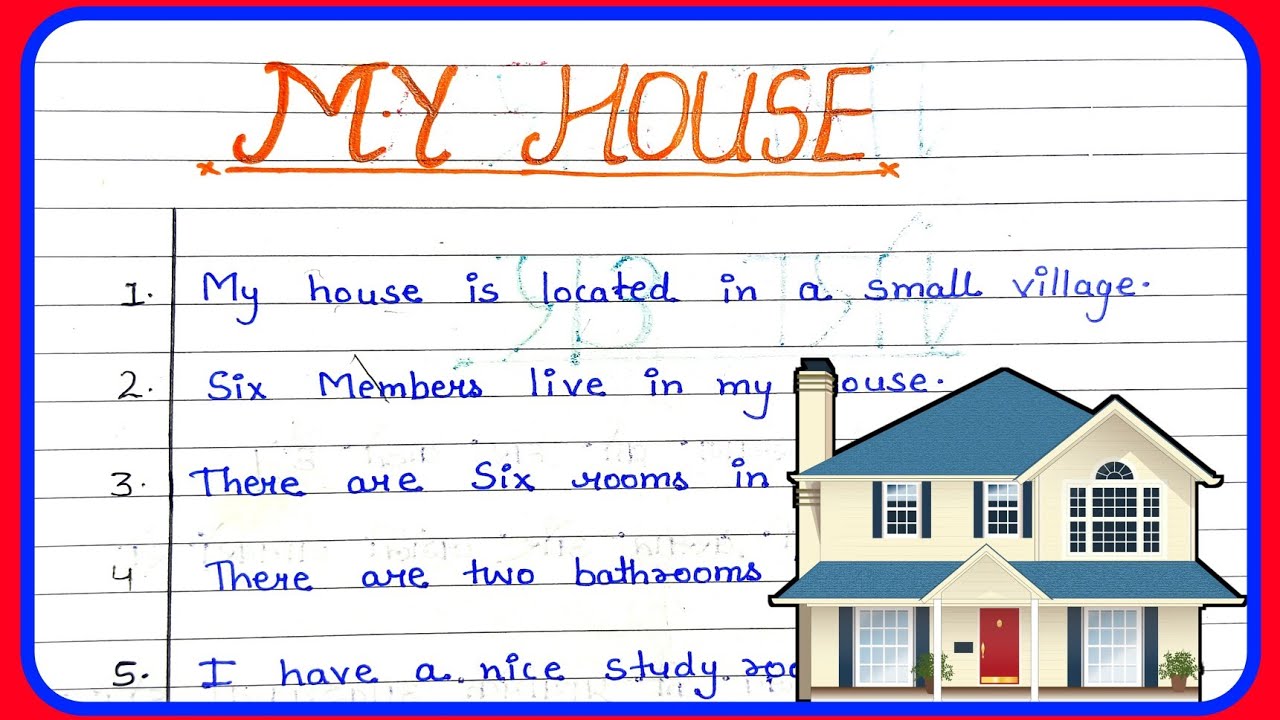 MY HOUSE
1. My house is located in a small village.
2. Six Members live in my ouse.
3. There are Six rooms in
4 There are two bathrooms
5. I have a nice study roo